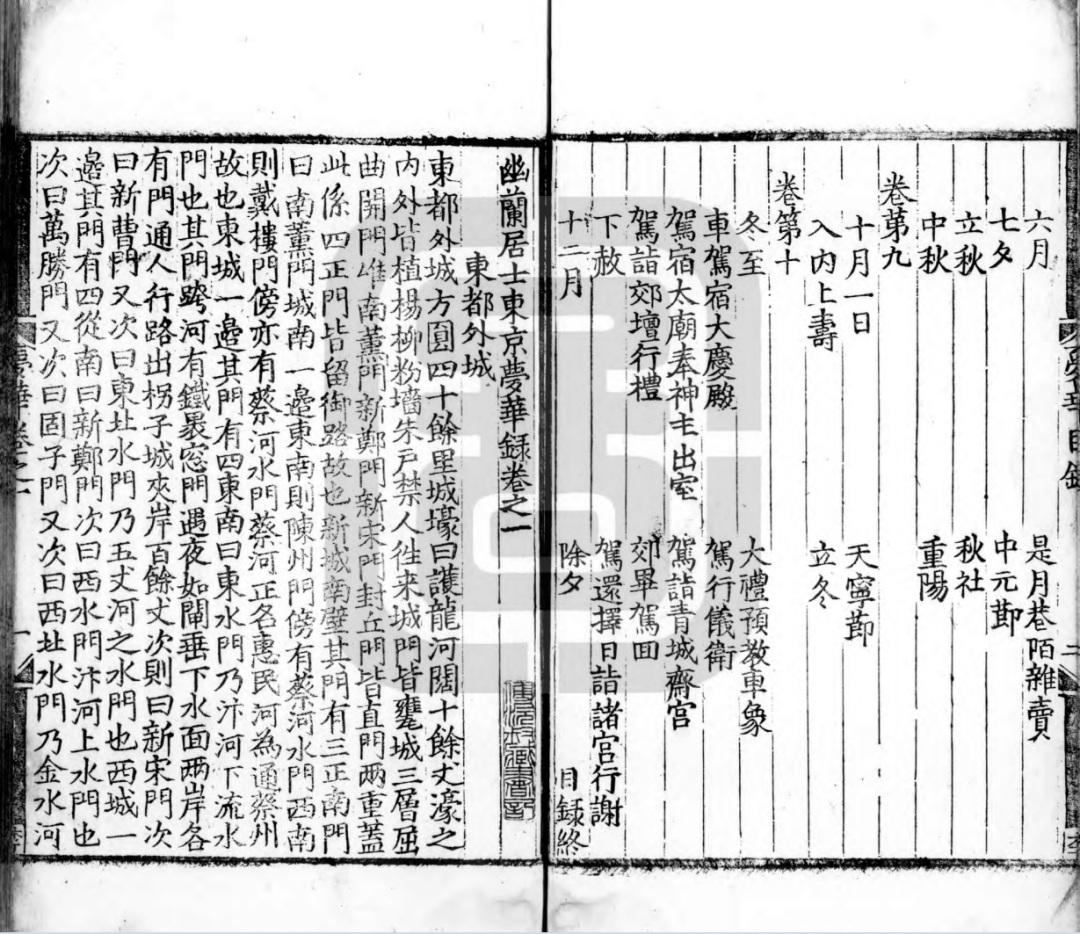 六月 是月巷陌雜賣
七夕 中元節
立秋 秋社
中秋 重陽
卷第九
十月一日 天寧節
入内上壽 立冬
卷第十
冬至 大禮預教車象
車駕宿大慶殿 駕行儀衛
駕宿太廟奉神主出室 駕詣青城齋宮
駕詣郊壇行禮 郊畢駕回
下赦 駕還擇日詣諸宮行謝
十二月 除夕 目錄終
幽蘭居士東京夢華錄卷之一
東都外城
東都外城方圓四十餘里城壕曰護龍河闊十餘丈濠之
内外皆植楊柳粉墻朱戶禁人徃来城門皆甕城三層屈
曲開門唯南薰門新鄭門新宋門封丘門皆直門兩重蓋
此係四正門皆留御路故也新城南壁其門有三正南門
曰南薰門城南一邊東南則陳州門傍有蔡河水門西南
則戴樓門傍亦有蔡河水門蔡河正名惠民河為通蔡州
故也東城一邊其門有四東南曰東水門乃汴河下流水
門也其門跨河有鐵裹窓門遇夜如閘垂下水面兩岸各
有門通人行路出拐子城夾岸百餘丈次則曰新宋門次
曰新曹門又次曰東北水門乃五丈河之水門也西城一
邊其門有四從南曰新鄭門次曰西水門汴河上水門也
次曰萬勝門又次曰固子門又次曰西北水門乃金水河